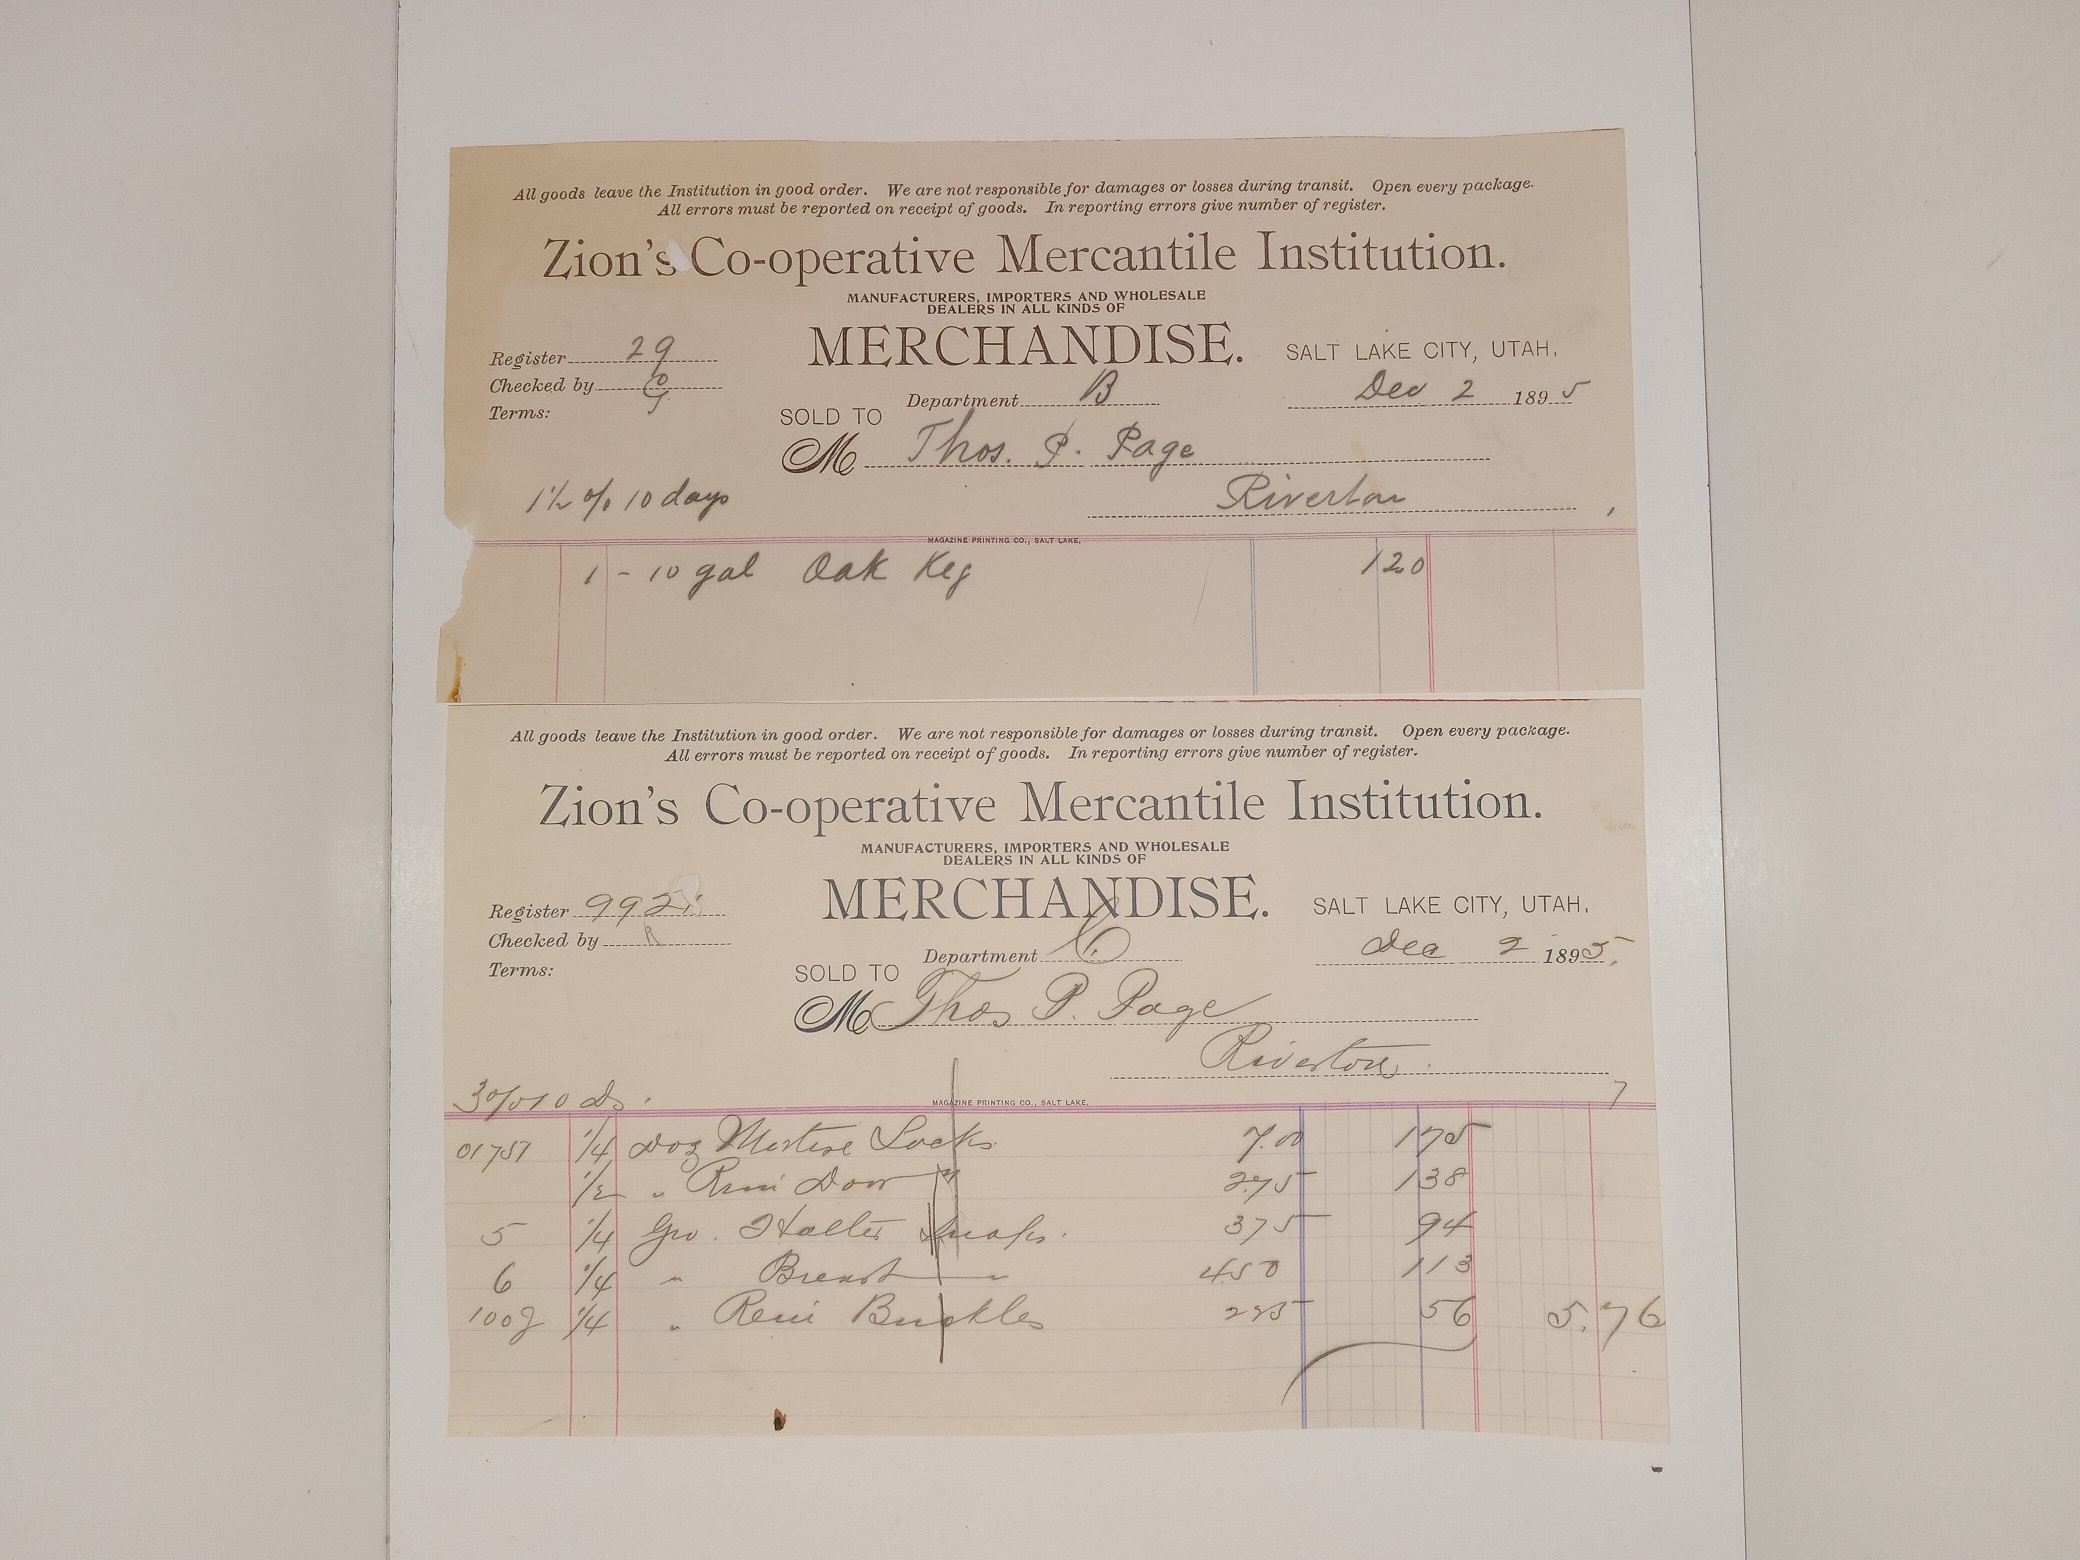 All goods leave the Institution in good order. We are not responsible for damages or losses during transit. Open every package.
All errors must be reported on receipt of goods. In reporting errors give number of register.
Zion's Co-operative Mercantile Institution.
MANUFACTURERS, IMPORTERS AND WHOLESALE
DEALERS IN ALL KINDS OF
MERCHANDISE.
SALT LAKE CITY, UTAH.
Register 29
Checked by
Terms:
Department B
Dec 2 1895
SOLD TO
M Thos. P. Page
1½ % 10 days
Riverton
MAGAZINE PRINTING CO., SALT LAKE.
1 - 10 gal Oak Keg 120
All goods leave the Institution in good order. We are not responsible for damages or losses during transit. Open every package.
All errors must be reported on receipt of goods. In reporting errors give number of register.
Zion's Co-operative Mercantile Institution.
MANUFACTURERS, IMPORTERS AND WHOLESALE
DEALERS IN ALL KINDS OF
MERCHANDISE.
SALT LAKE CITY, UTAH.
Register 992
Checked by R
Terms:
Department
Dec 2 1895.
SOLD TO
M Thos P. Page
Riverton
3% 10 ds.
MAGAZINE PRINTING CO., SALT LAKE.
1/4 Doz Mortise Locks 7.00 175
1/2 " Rim Door " 275 138
5 1/4 Gro. Halter Snaps. 375 94
6 1/4 " Breast " 450 113
1/4 " Buckles 225 56 5.76